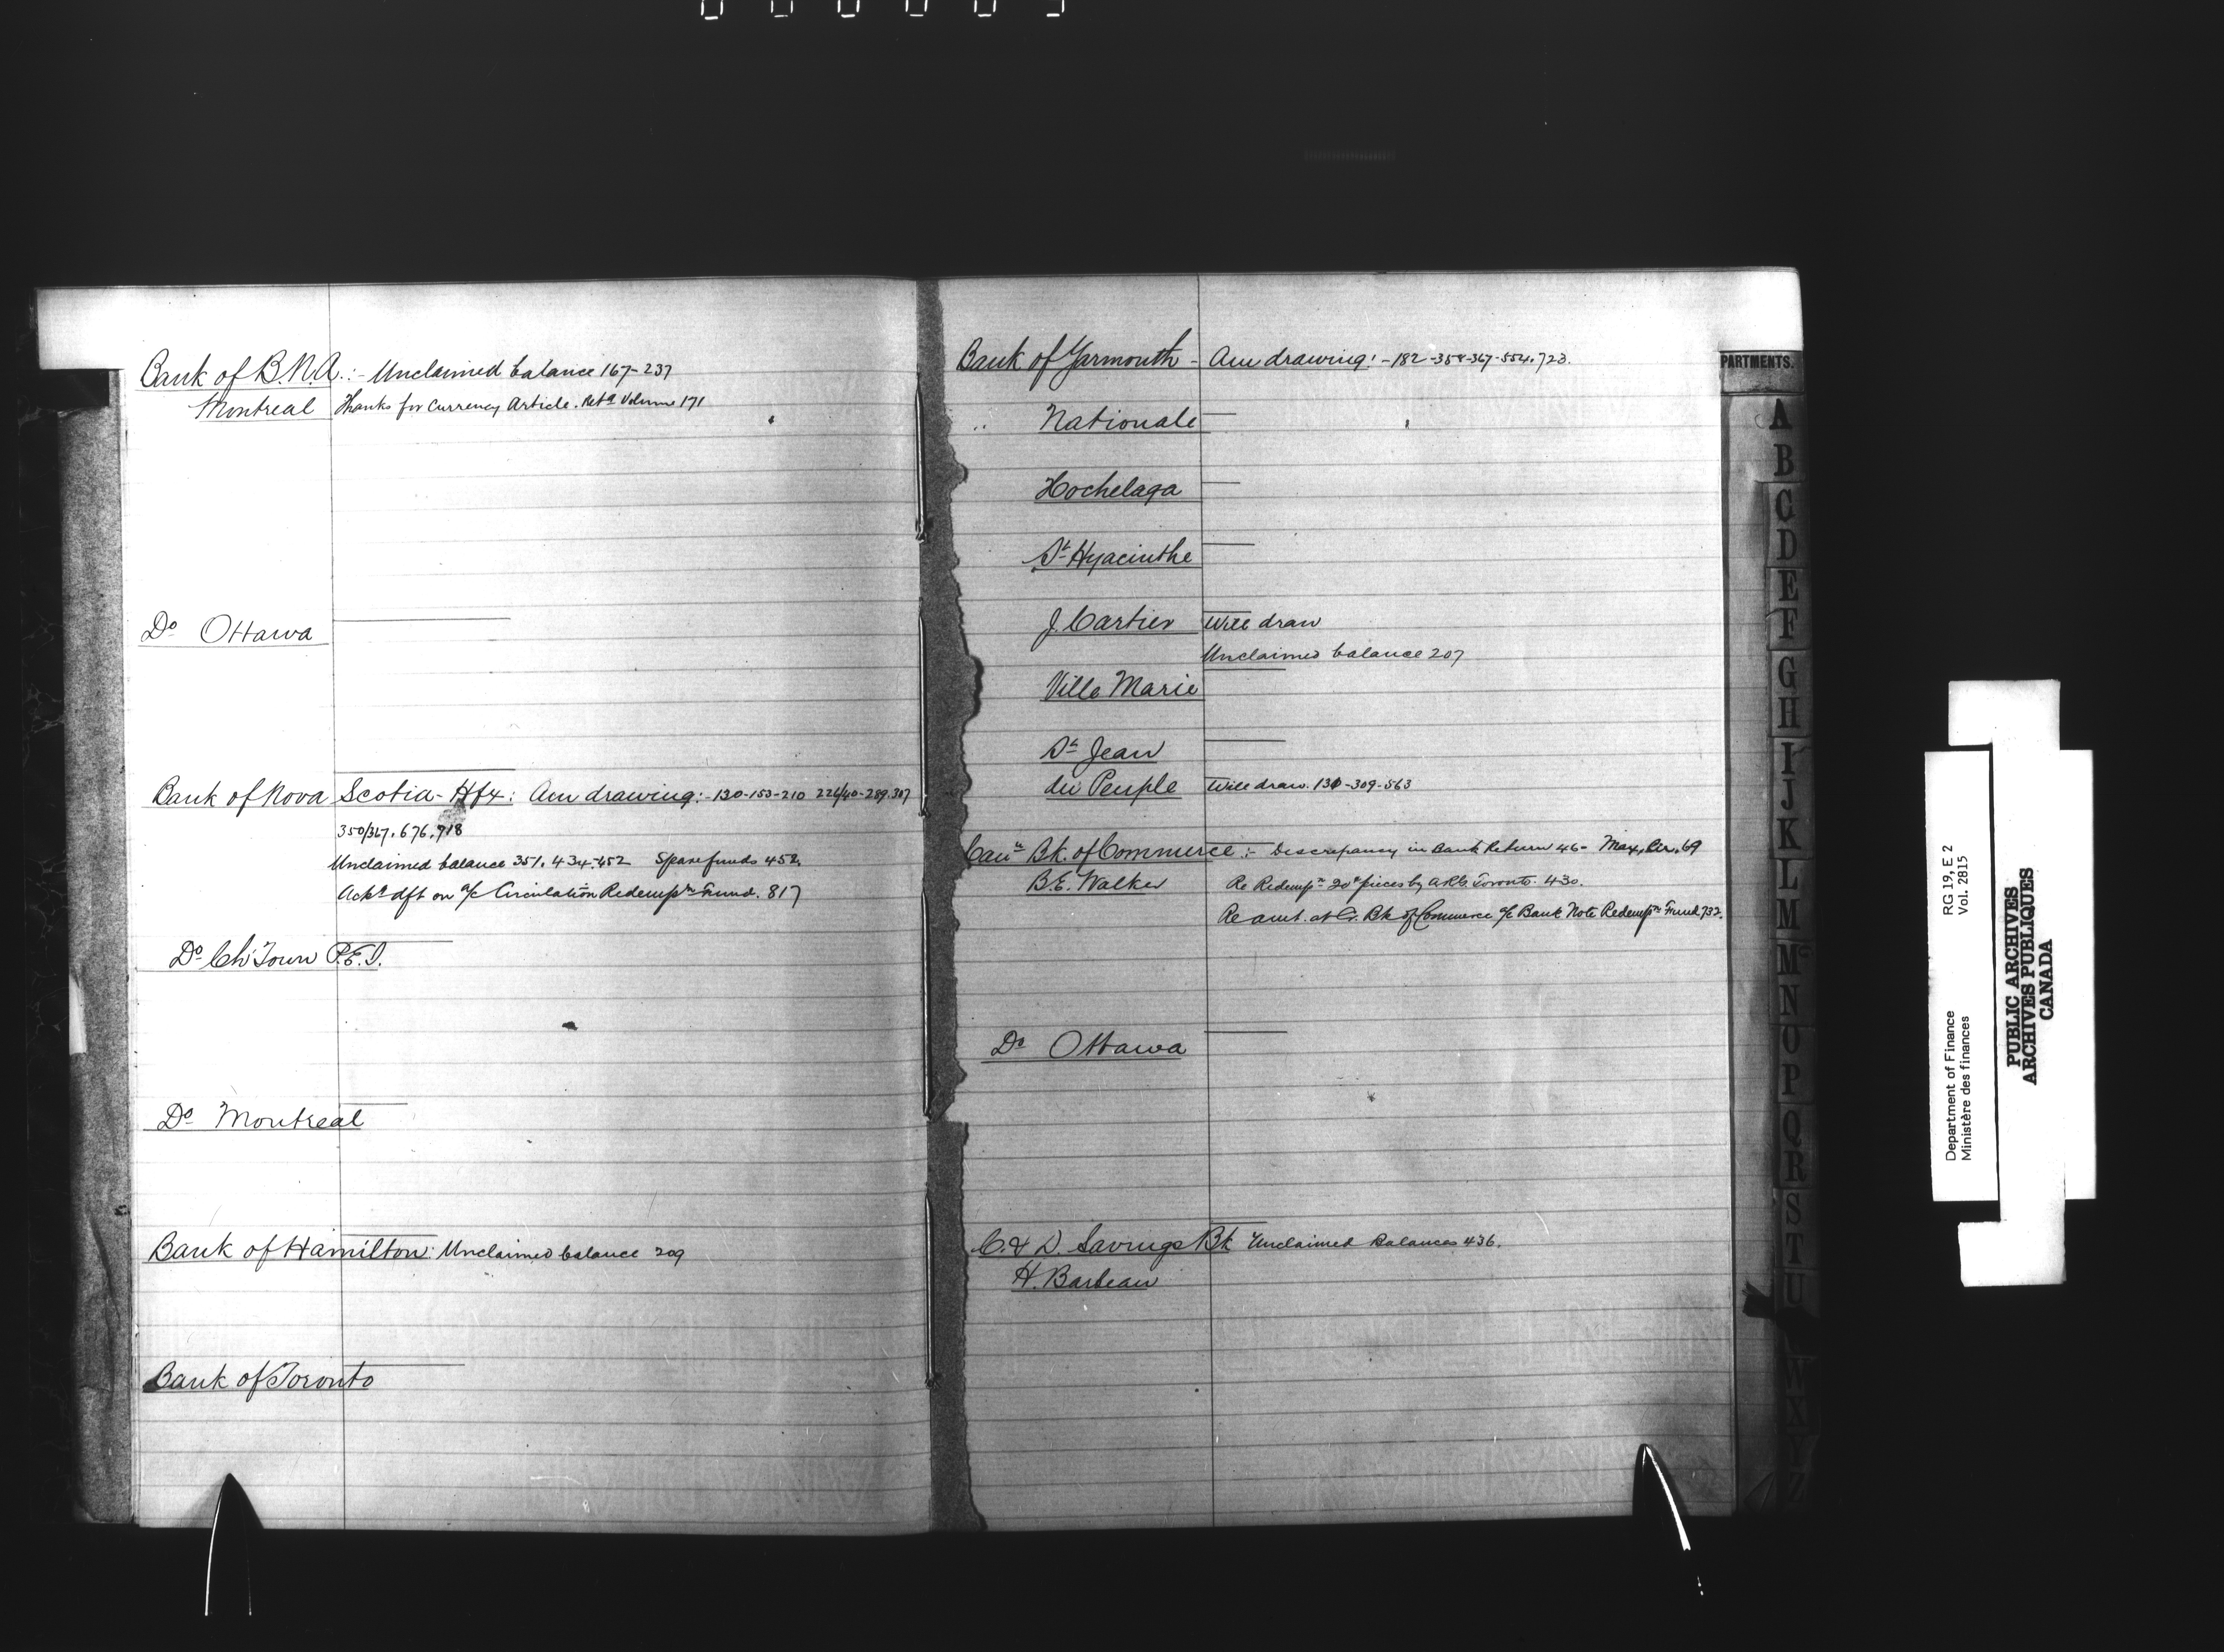 Bank of B.N.A.:- Unclaimed balance 167-237
Montreal Thanks for Currency Article. Retd Volume 171
Do Ottawa
Bank of Nova Scotia - Hfx: Am drawing:-130-153-210 226/40-289.307
350/367.676.718
Unclaimed balance 351.434.452 Spare funds 452.
Ackd dft on a/c Circulation Redempn Fund. 817
Do Ch'Town P.E.I.
Do Montreal
Bank of Hamilton: Unclaimed balance 209
Bank of Toronto
Bank of Yarmouth - Am drawing:-182-358-367-554.723.
.. Nationale
Hochelaga
St Hyacinthe
J. Cartier Will draw
Unclaimed balance 207
Ville Marie
St Jean
du Peuple Will draw. 130-309-563
Cann Bk. of Commerce:- Discrepancy in Bank Return 46- Max. Cir. 69
B.E. Walker Re Redempn 20c pieces by A.R.G. Toronto. 430.
Re amt. at Cr. Bk of Commerce a/c Bank Note Redempn Fund 732.
Do Ottawa
C. & D. Savings Bk Unclaimed Balances 436.
H. Barbeau
PARTMENTS.
A
B
C
D
E
F
G
H
I
J
K
L
M
Mc
N
O
P
Q
R
S
T
U
W
X
Y
Z
Department of Finance RG 19, E 2
Ministère des finances Vol. 2815
PUBLIC ARCHIVES
ARCHIVES PUBLIQUES
CANADA